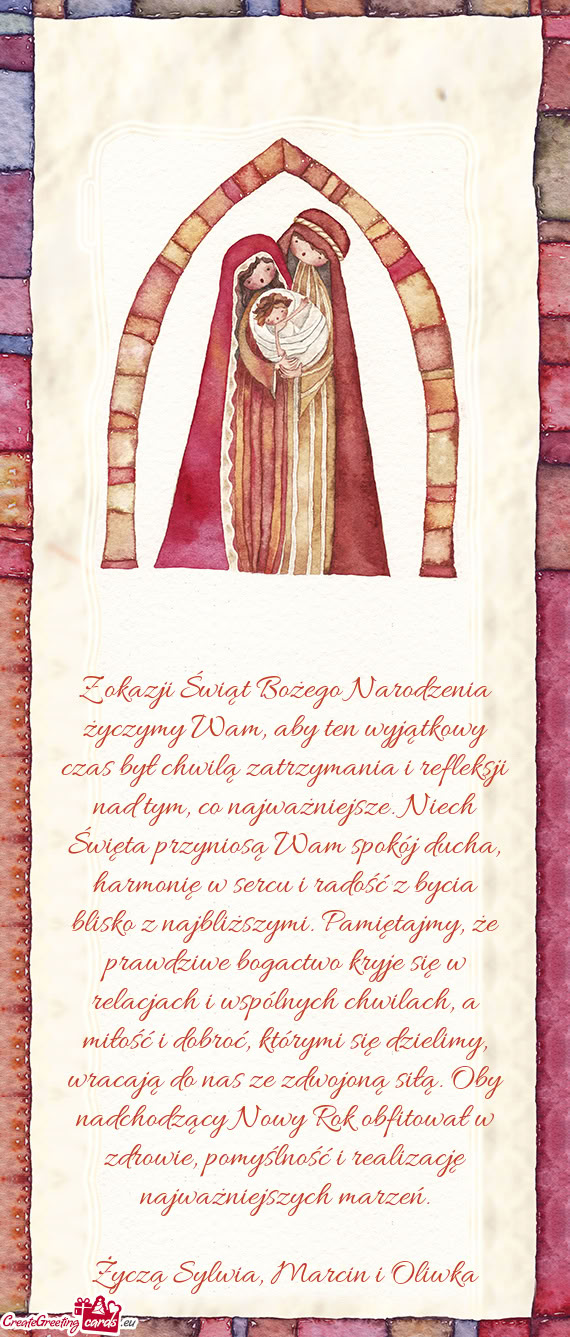 Z okazji Świąt Bożego Narodzenia
życzymy Wam, aby ten wyjątkowy
czas był chwilą zatrzymania i refleksji
nad tym, co najważniejsze. Niech
Święta przyniosą Wam spokój ducha,
harmonię w sercu i radość z bycia
blisko z najbliższymi. Pamiętajmy, że
prawdziwe bogactwo kryje się w
relacjach i wspólnych chwilach, a
miłość i dobroć, którymi się dzielimy,
wracają do nas ze zdwojoną siłą. Oby
nadchodzący Nowy Rok obfitował w
zdrowie, pomyślność i realizację
najważniejszych marzeń.
Życzą Sylwia, Marcin i Oliwka
CreateGreeting cards .eu